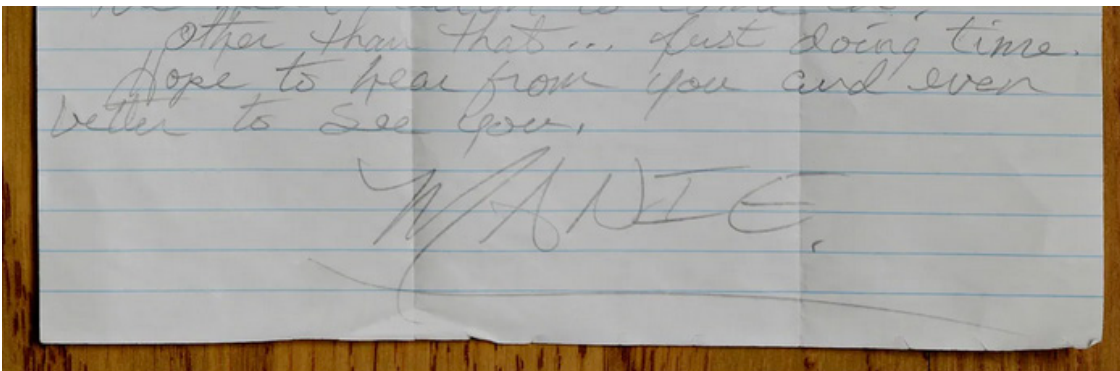 Other than that... Just doing time.
Hope to hear from you and even
better to see you.
MANIE.